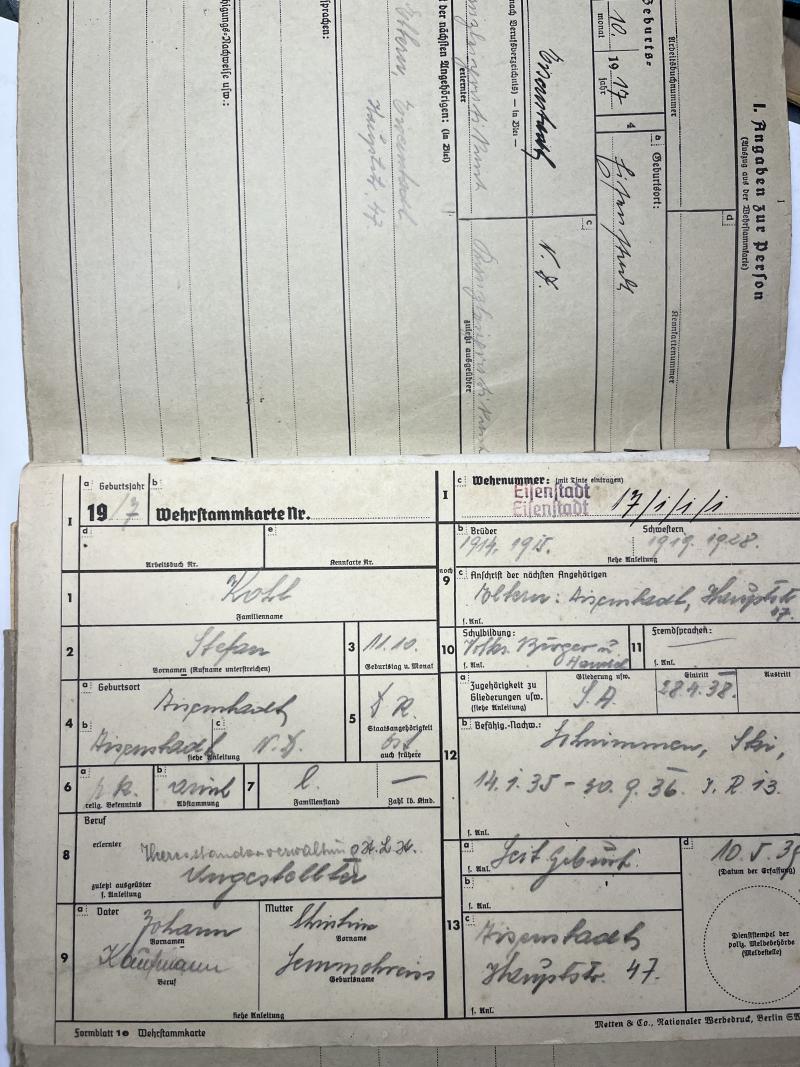 I. Angaben zur Person
(Auszug aus der Wehrstammkarte)
d
Arbeitsbuchnummer
Kennkartennummer
Geburts-
10. 19 17
monat jahr
4
a Geburtsort:
Eisenstadt
nach Berufsverzeichnis) — in Blei —
Eisenstadt
c
N. D.
erlernter
zuletzt ausgeübter
der nächsten Angehörigen: (in Blei)
Eltern, Eisenstadt
Hauptstr. 47
sprachen:
higungs-Nachweise usw.:
I
a Geburtsjahr
b
19 17 Wehrstammkarte Nr.
d
e
Arbeitsbuch Nr.
Kennkarte Nr.
1
Kohl
Familienname
2
Stefan
Vornamen (Rufname unterstreichen)
3
11.10.
Geburtstag u. Monat
4
a Geburtsort
Eisenstadt
b
c
Eisenstadt N. D.
siehe Anleitung
5
D R.
Staatsangehörigkeit
öst.
auch frühere
6
a
r. k.
relig. Bekenntnis
b
arisch
Abstammung
7
l.
Familienstand
—
Zahl lb. Kind.
8
Beruf
erlernter
zuletzt ausgeübter
s. Anleitung
Angestellter
9
a Vater
Johann
Vornamen
Kaufmann
Beruf
Mutter
Christine
Vorname
Geburtsname
siehe Anleitung
Formblatt 10 Wehrstammkarte
I
c Wehrnummer: (mit Tinte eintragen)
Eisenstadt
Eisenstadt
17/1/1/1
noch 9
b Brüder
1914. 1915.
Schwestern
1919. 1928.
siehe Anleitung
c Anschrift der nächsten Angehörigen
Eltern: Eisenstadt, Hauptstr.
47.
s. Anl.
10
Schulbildung:
Volks Bürger u.
s. Anl.
11
Fremdsprachen:
—
s. Anl.
12
a
Zugehörigkeit zu
Gliederungen usw.
(siehe Anleitung)
Gliederung usw.
S.A.
Eintritt
28.4.38.
Austritt
b Befähig.-Nachw.:
Schwimmen, Ski,
14.1.35 - 30.9.36. I. R 13.
s. Anl.
13
a
Seit Geburt
s. Anl.
b
s. Anl.
c
Eisenstadt
Hauptstr. 47.
s. Anl.
d
10.5.39
(Datum der Erfassung)
Dienststempel der
poliz. Meldebehörde
(Meldestelle)
Metten & Co., Nationaler Werbedruck, Berlin SW